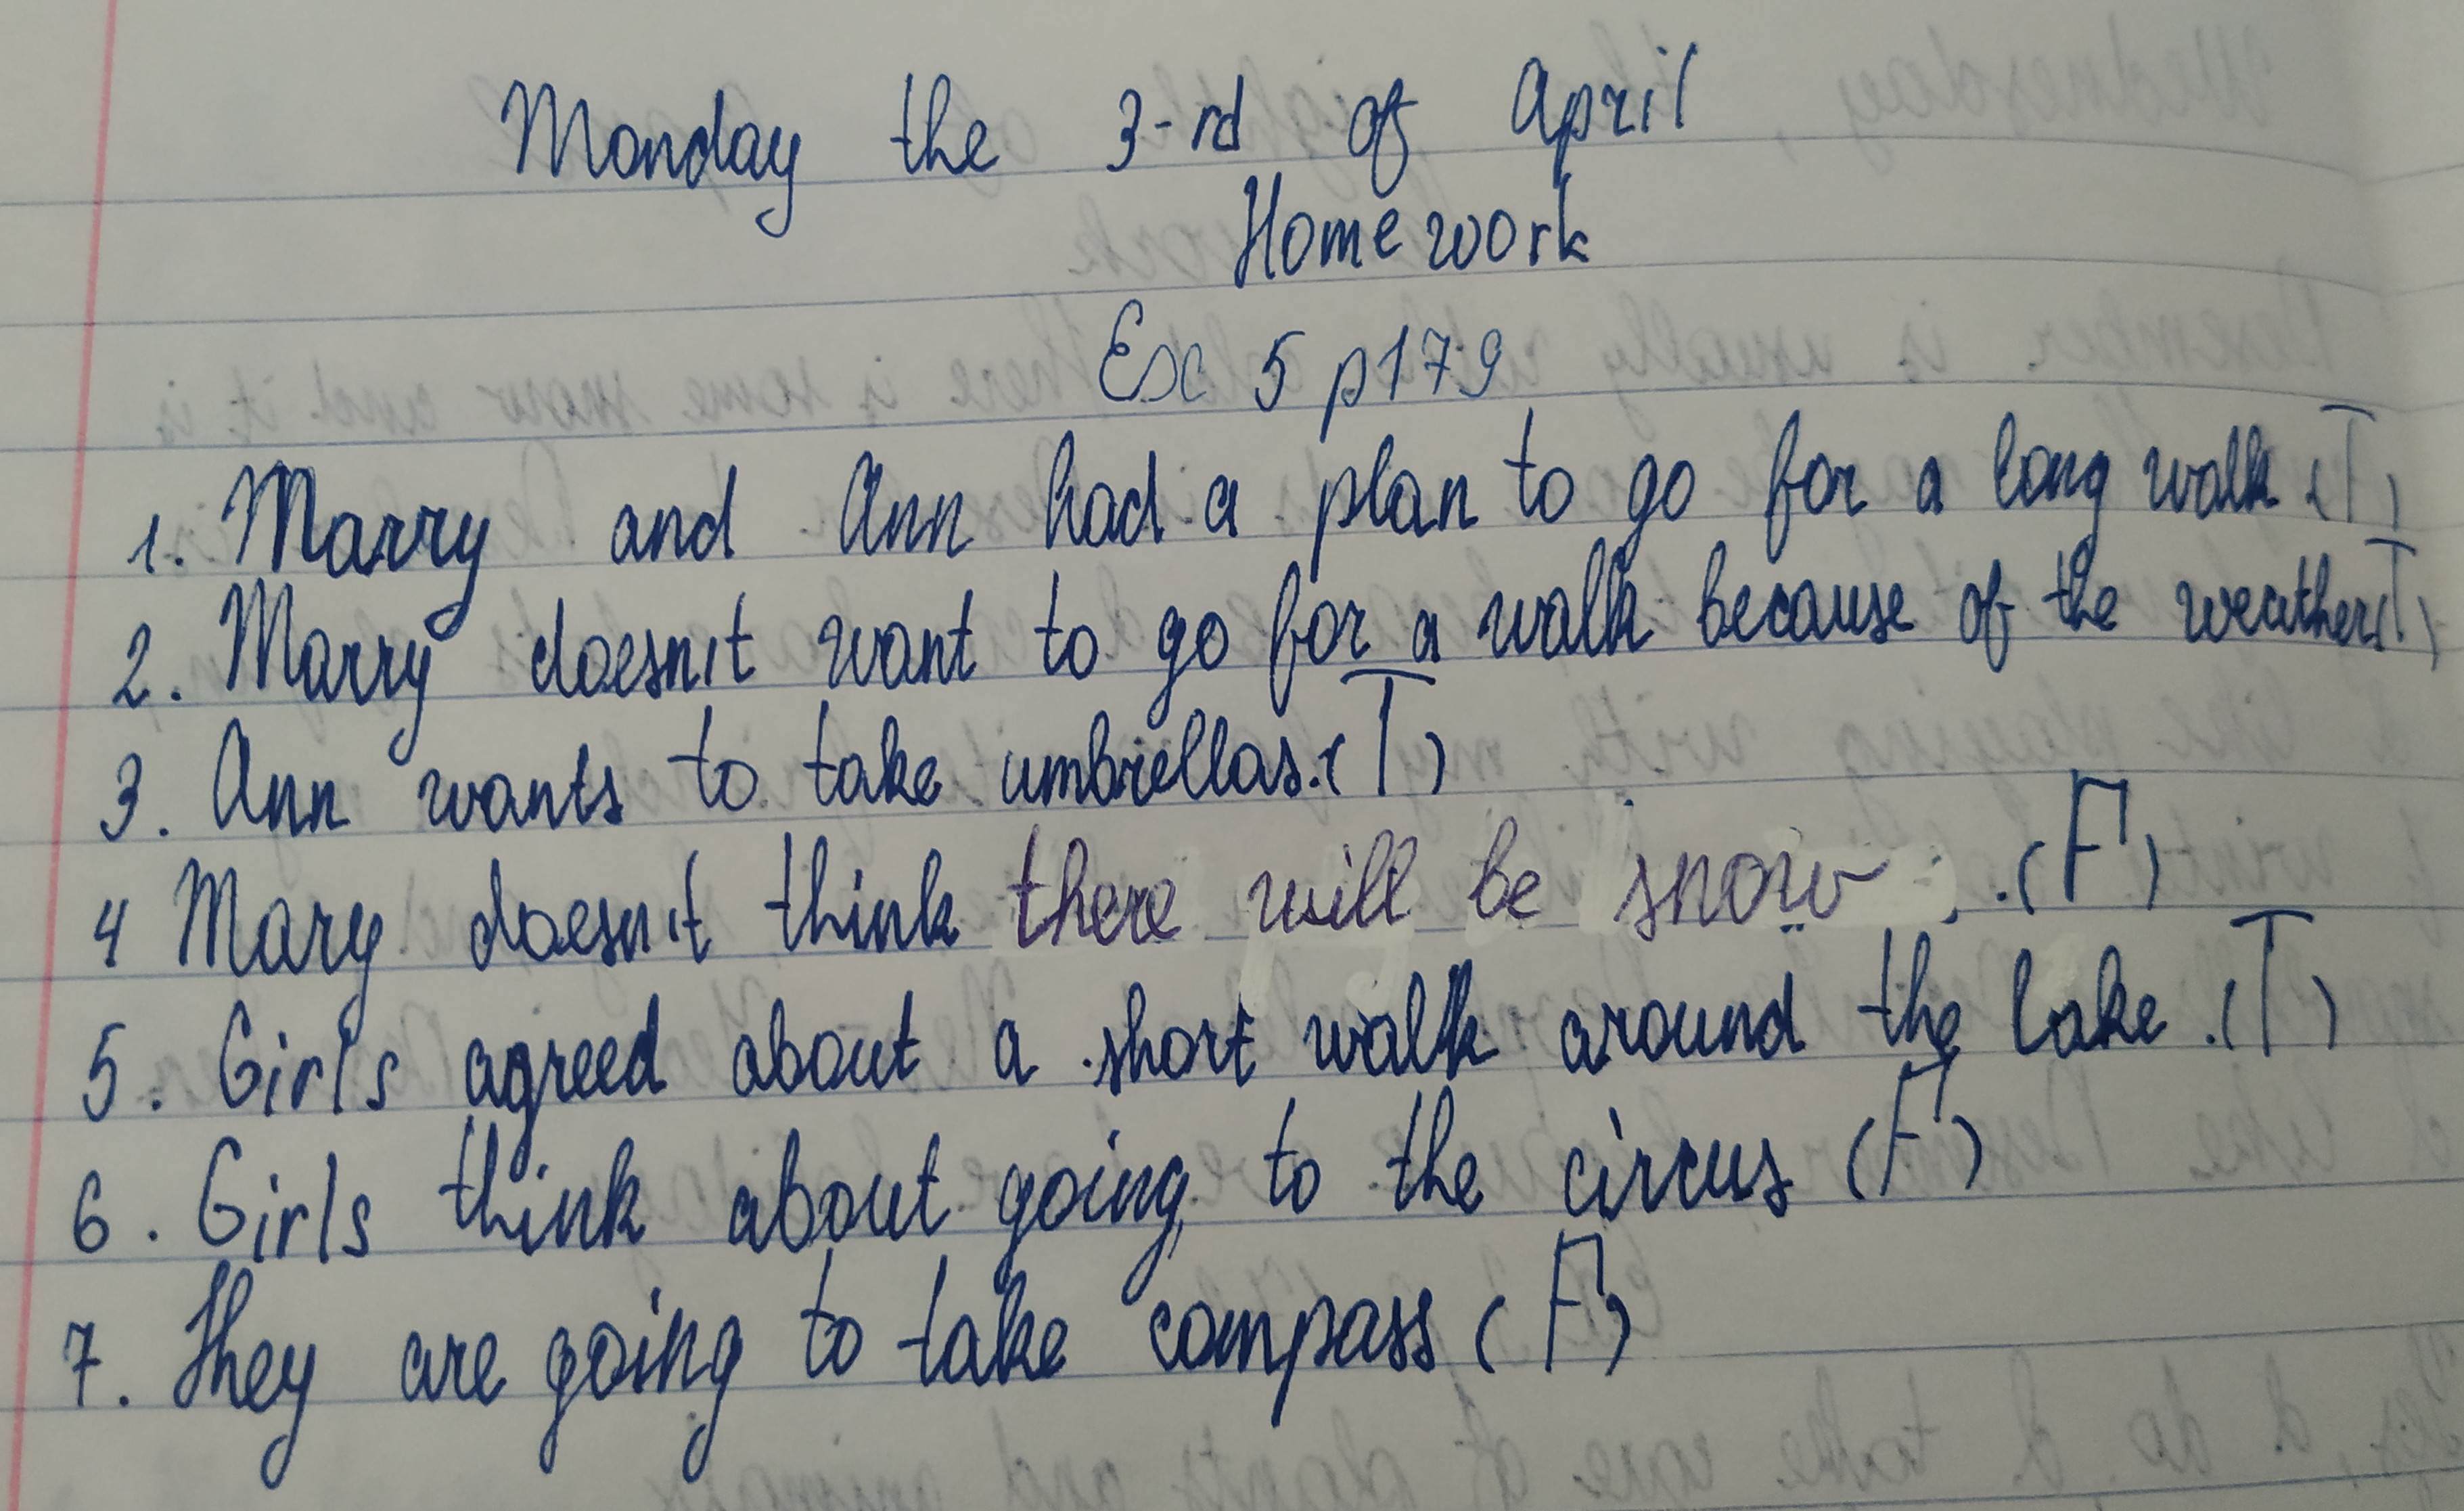 Monday the 3-rd of April
Homework
Exc 5 p179
1. Marry and Ann had a plan to go for a long walk (T)
2. Marry doesn't want to go for a walk because of the weather(T)
3. Ann wants to take umbrellas.(T)
4 Mary doesn't think there will be snow .(F)
5. Girls agreed about a short walk around the lake.(T)
6. Girls think about going to the circus (F)
7. They are going to take compass (F)